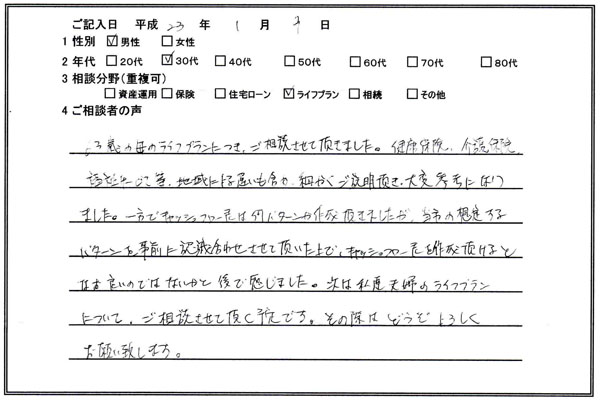 ご記入日 平成 23 年 1 月 9 日
1 性別 ☑男性 □女性
2 年代 □20代 ☑30代 □40代 □50代 □60代 □70代 □80代
3 相談分野(重複可)
□資産運用 □保険 □住宅ローン ☑ライフプラン □相続 □その他
4 ご相談者の声
3歳の母のライフプランにつき、ご相談させて頂きました。健康保険、介護保険、
等、地域による違いも含め、細かくご説明頂き、大変参考になり
ました。一方でキャッシュフロー表は何パターンか作成頂きましたが、当方の想定する
パターンを事前に認識合わせさせて頂いた上で、キャッシュフロー表を作成頂けると
なお良いのではないかと後で感じました。次は私達夫婦のライフプラン
について、ご相談させて頂く予定です。その際はどうぞよろしく
お願い致します。